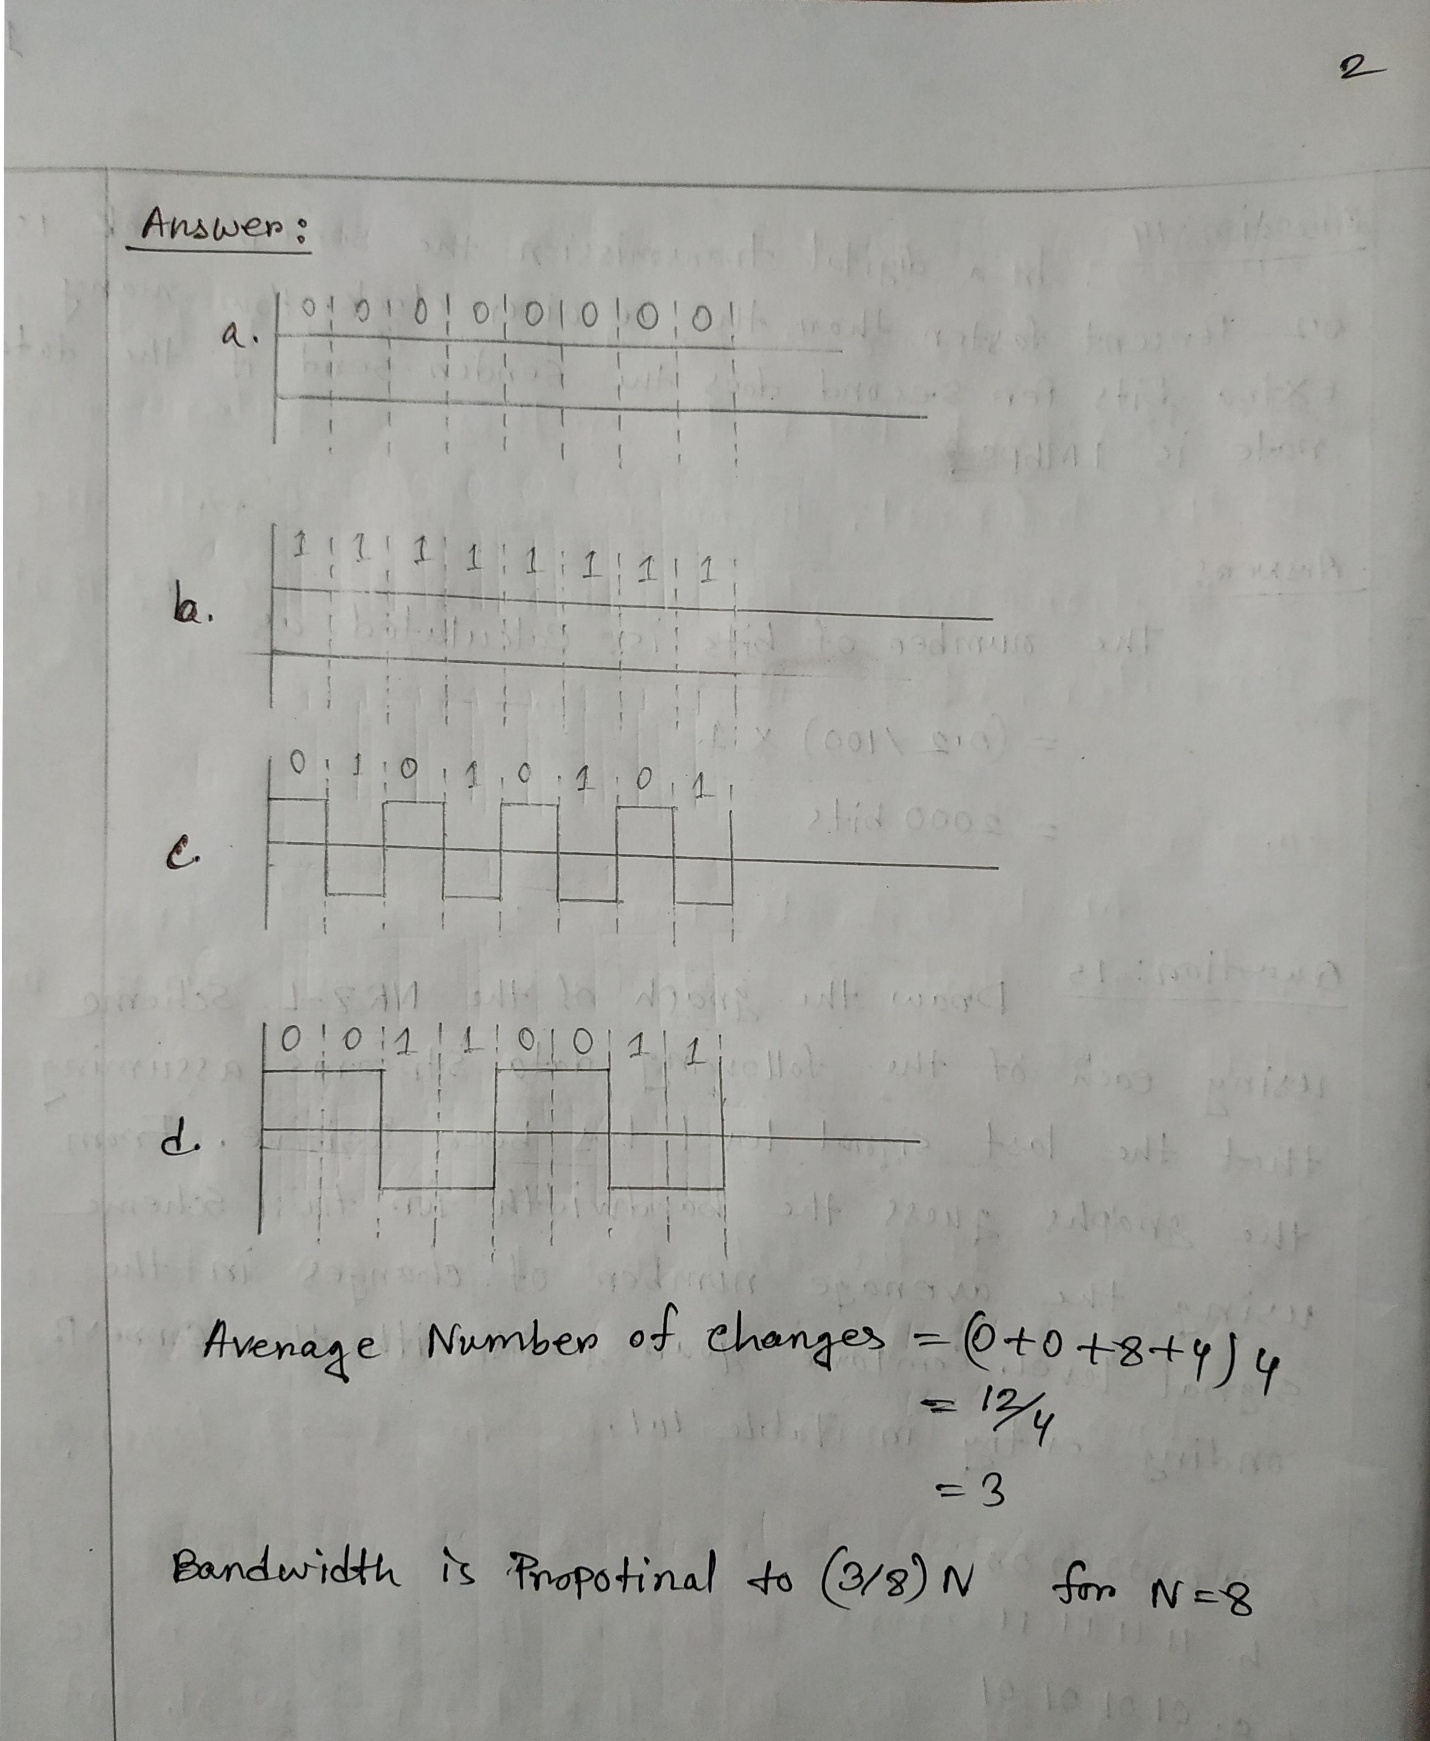 2
Answer:
a. 0 0 0 0 0 0 0 0
b. 1 1 1 1 1 1 1 1
c. 0 1 0 1 0 1 0 1
d. 0 0 1 1 0 0 1 1
Average Number of changes = (0+0+8+4) 4
= 12/4
= 3
Bandwidth is Propotinal to (3/8) N for N=8